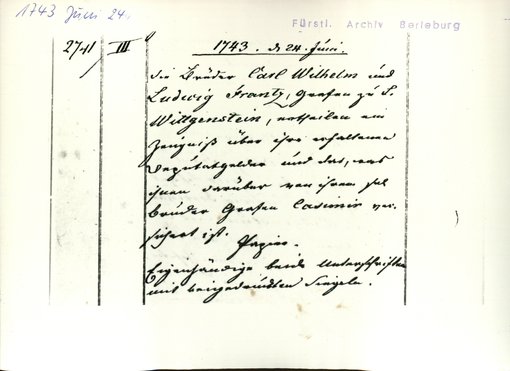 1743 Juni 24.
Fürstl. Archiv Berleburg
2741 III
1743. d. 24. Juni.
die Brüder Carl Wilhelm und
Ludwig Frantz, Grafen zu S.
Wittgenstein, ertheilen ein
Zeugniß über ihre erhaltenen
Deputatgelder und das, was
ihnen darüber von ihrem
Bruder Grafen Casimir ver-
sichert ist.
Papier.
Eigenhändige beide Unterschriften
mit beigedruckten Siegeln.